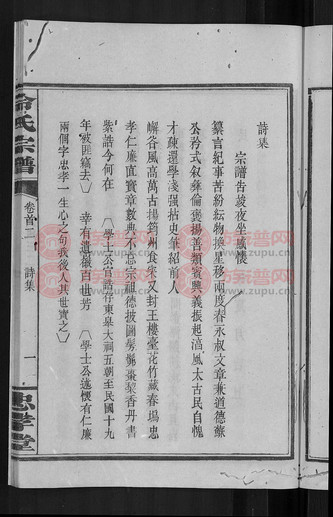 詩集
宗譜告竣夜坐感懷
纂言紀事苦紛紜物換星移兩度春永叔文章兼道德蘇
公矜式叙彝倫褒揚善類賓興義振起澆風太古民自愧
才疎還學淺强拈史筆紹前人
嶰谷風高萬古揚筠州食采又封王樓臺花竹藏春塢忠
孝仁廉直實章敦典不忘宗祖德披圖髣髴棗梨香丹書
紫誥今何在 學士公言誥存東臯大祠五朝至民國十九
年被匪竊去 幸有遺徽百世芳 學士公遺懷有仁廉
兩個字忠孝一生心之句我後人其世寶之
冷氏宗譜
卷首二
詩集
一
忠孝堂
族譜网
www.zupu.cn